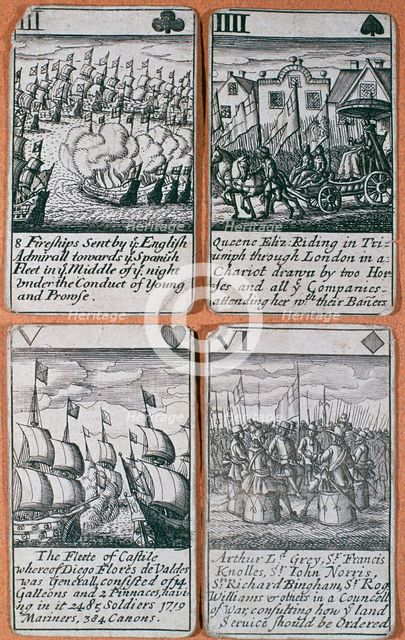 IIII
IIII
8 Fireships Sent by yͤ English
Admirall towards yͤ Spanish
Fleet in yͤ Middle of yͤ night
Vnder the Conduct of Young
and Prowse.
Queene Eliz: Riding in Tri=
umph through London in a
Chariot drawn by two Hor=
ses and all yͤ Companies
attending her wth their Baners
V
VI
The Fleete of Castile
whereof Diego Flores de Valdes
was Generall, consisted of 14
Galleons and 2 Pinnaces, hav=
ing in it 2485 Soldiers 1719
Mariners, 384 Canons.
Arthur Ld Grey, Sr Francis
Knolles, Sr Iohn Norris,
Sr Richard Bingham, Sr Rog
Williams & others in a Councell
of War, consulting how yͤ land
Service should be Ordered
Heritage
Heritage
Heritage
Heritage
Heritage
Heritage